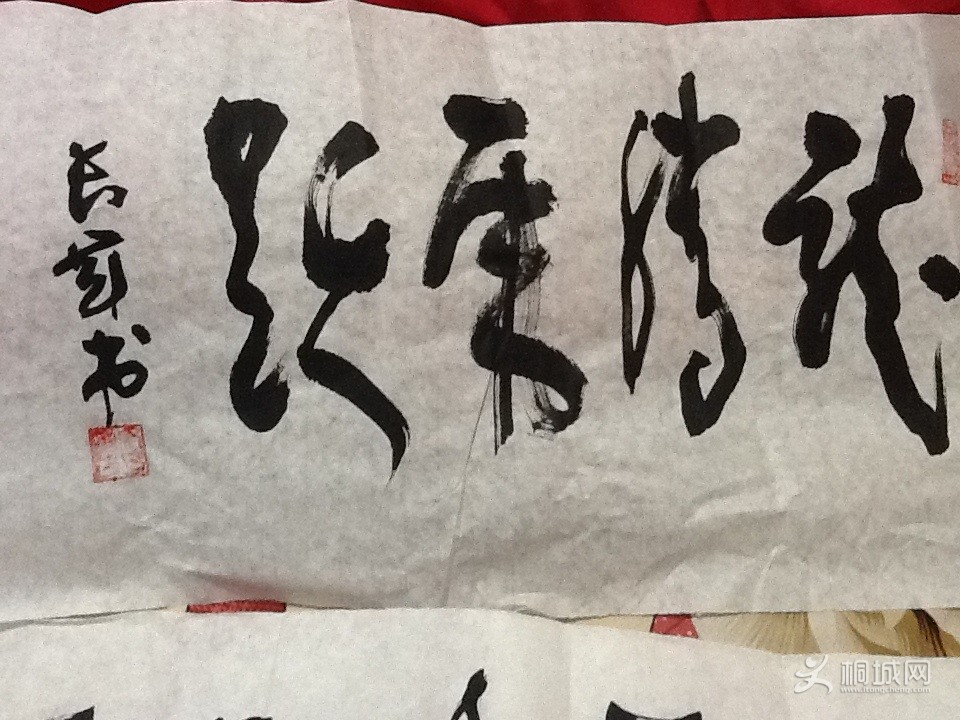 龍騰虎躍
长 书
桐城网
www.itongcheng.com